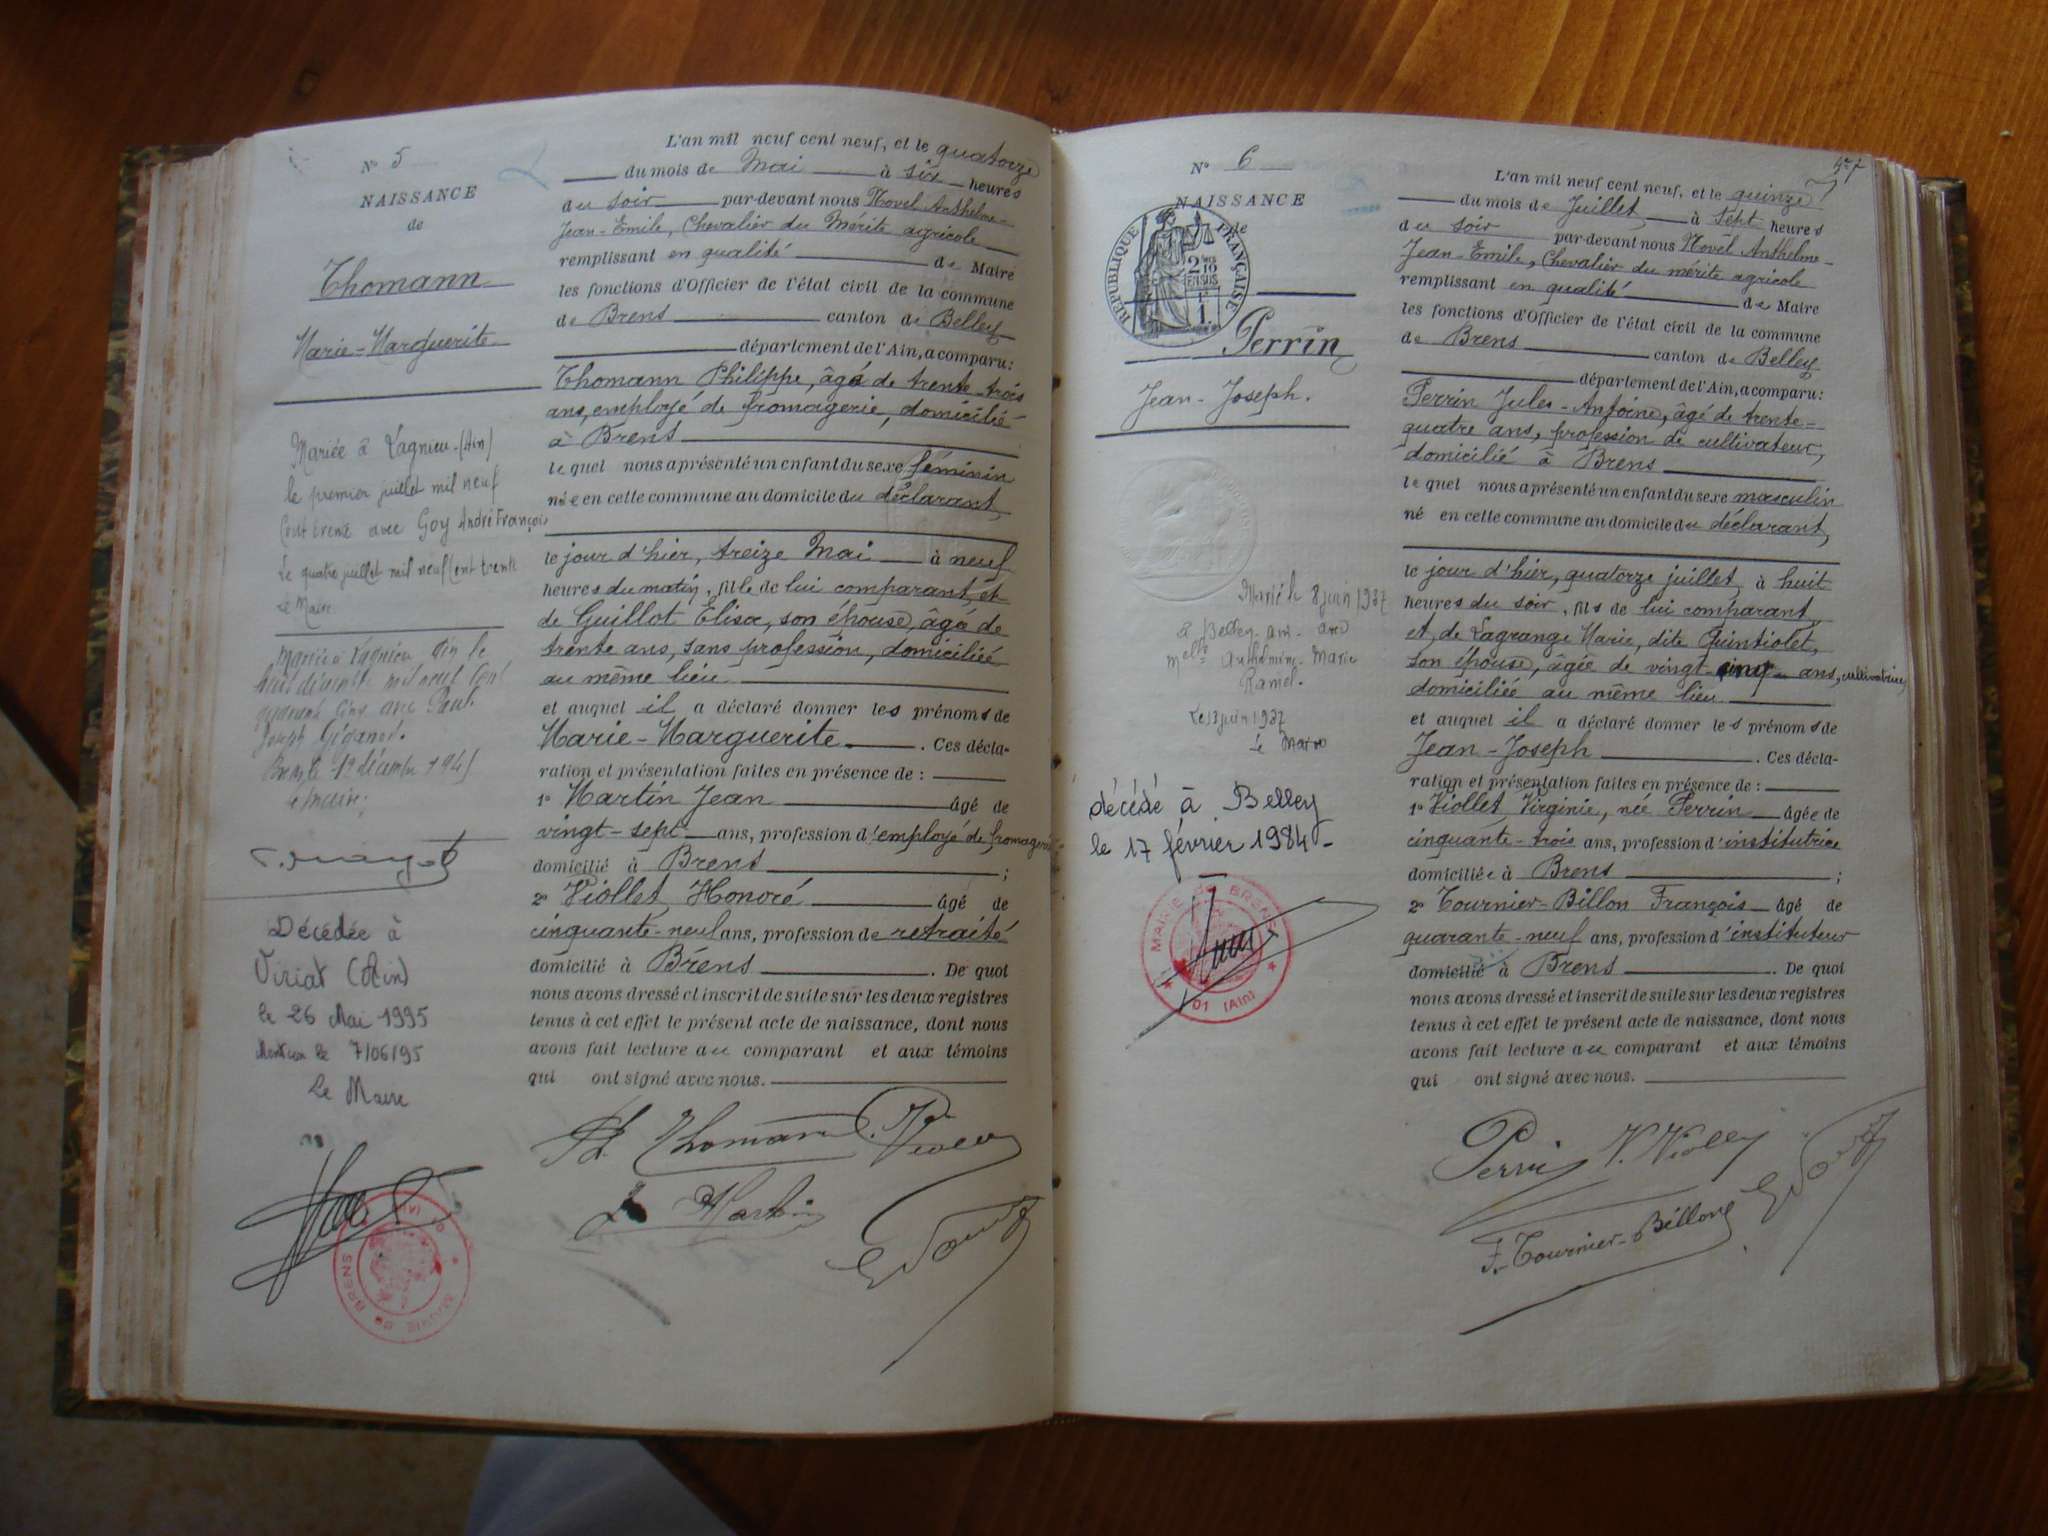 N° 5
NAISSANCE
de
Thomann
Marie-Marguerite
Mariée à Lagnieu (Ain)
le premier juillet mil neuf
cent trente avec Goy André François
Le quatre juillet mil neuf cent trente
Le Maire
Mariée à Lagnieu Ain le
huit décembre mil neuf cent
quarante cinq avec Paul
Joseph
Brens le 1 décembre 1945
le maire:
Décédée à
Viriat (Ain)
le 26 Mai 1995
Mention le 7/06/95
Le Maire
MAIRIE DE BRENS
L'an mil neuf cent neuf, et le quatorze
du mois de Mai à six heures
du soir par-devant nous Novel Anthelme-
Jean-Emile, Chevalier du Mérite agricole
remplissant en qualité de Maire
les fonctions d'Officier de l'état civil de la commune
de Brens canton de Belley
département de l'Ain, a comparu:
Thomann Philippe, âgé de trente-trois
ans, employé de fromagerie, domicilié
à Brens
lequel nous a présenté un enfant du sexe féminin
née en cette commune au domicile du déclarant
le jour d'hier, treize Mai à neuf
heures du matin, fille de lui comparant, et
de Guillot Elisa, son épouse, âgée de
trente ans, sans profession, domiciliée
au même lieu
et auquel il a déclaré donner les prénoms de
Marie-Marguerite. Ces décla-
ration et présentation faites en présence de :
1° Martin Jean âgé de
vingt-sept ans, profession d'employé de fromagerie
domicilié à Brens ;
2° Viollet Honoré âgé de
cinquante-neuf ans, profession de retraité
domicilié à Brens. De quoi
nous avons dressé et inscrit de suite sur les deux registres
tenus à cet effet le présent acte de naissance, dont nous
avons fait lecture au comparant et aux témoins
qui ont signé avec nous.
Ph. Thomann
J Martin
N° 6
NAISSANCE
de
RÉPUBLIQUE FRANÇAISE
2/10 EN SUS
Perrin
Jean-Joseph.
Marié le 8 juin 1937
à Belley-Ain- avec
Melle Anthelmine Marie
Ramel.
Le 13 juin 1937
Le Maire
décédé à Belley
le 17 février 1984-
MAIRIE DE BRENS
01 (Ain)
L'an mil neuf cent neuf, et le quinze
du mois de Juillet à sept heures
du soir par-devant nous Novel Anthelme-
Jean-Emile, Chevalier du mérite agricole
remplissant en qualité de Maire
les fonctions d'Officier de l'état civil de la commune
de Brens canton de Belley
département de l'Ain, a comparu:
Perrin Jules-Antoine, âgé de trente-
quatre ans, profession de cultivateur,
domicilié à Brens
lequel nous a présenté un enfant du sexe masculin
né en cette commune au domicile du déclarant,
le jour d'hier, quatorze juillet, à huit
heures du soir, fils de lui comparant
et de Lagrange Marie, dite Quintiolet,
son épouse, âgée de vingt-cinq ans, cultivatrice,
domiciliée au même lieu
et auquel il a déclaré donner les prénoms de
Jean-Joseph. Ces décla-
ration et présentation faites en présence de :
1° Viollet Virginie, née Perrin âgée de
cinquante-trois ans, profession d'institutrice
domiciliée à Brens ;
2° Tournier-Billon François âgé de
quarante-neuf ans, profession d'instituteur
domicilié à Brens. De quoi
nous avons dressé et inscrit de suite sur les deux registres
tenus à cet effet le présent acte de naissance, dont nous
avons fait lecture au comparant et aux témoins
qui ont signé avec nous.
Perrin V. Viollet
F. Tournier-Billon